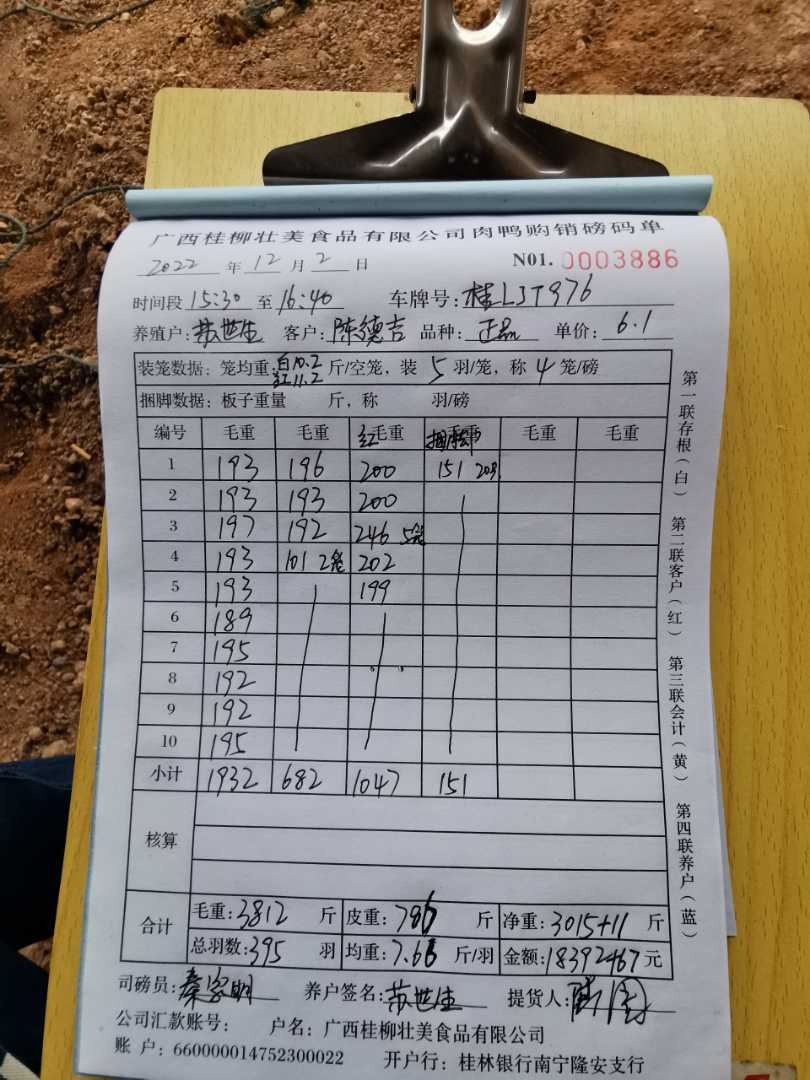 广西桂柳壮美食品有限公司肉鸭购销磅码单
2022 年 12 月 2 日 N01. 0003886
时间段 15:30 至 16:40 车牌号: 桂LJT976
养殖户: 苏世生 客户: 陈德吉 品种: 正品 单价: 6.1
装笼数据: 笼均重: 白10.2 红11.2 斤/空笼, 装 5 羽/笼, 称 4 笼/磅
捆脚数据: 板子重量 斤, 称 羽/磅
编号 毛重 毛重 红毛重 捆脚 毛重 毛重
1 193 196 200 151 20羽
2 193 193 200
3 197 192 246 5笼
4 193 101 2笼 202
5 193 199
6 189
7 195
8 192
9 192
10 195
小计 1932 682 1047 151
核算
合计 毛重: 3812 斤 皮重: 786 斤 净重: 3015+11 斤
总羽数: 395 羽 均重: 7.66 斤/羽 金额: 18392467 元
司磅员: 秦家明 养户签名: 苏世生 提货人:
公司汇款账号: 户名: 广西桂柳壮美食品有限公司
账 户: 660000014752300022 开户行: 桂林银行南宁隆安支行
第一联存根(白) 第二联客户(红) 第三联会计(黄) 第四联养户(蓝)